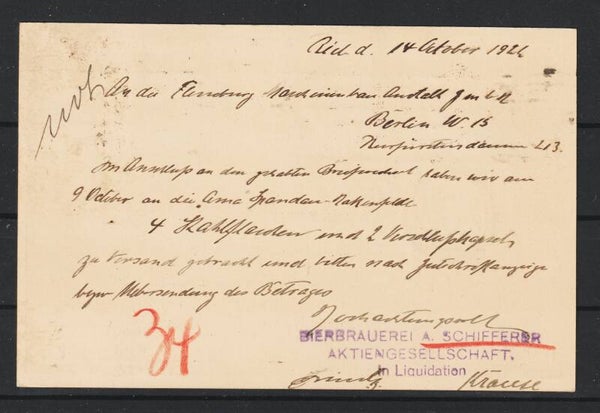 Kiel d. 14 October 1922
An die Flensburg Maschinenbau Anstalt G m b H
Berlin W. 15
Kurfürstendamm 213.
Im Anschluss an den gehabten Briefwechsel haben wir am
9 October an die Firma Spandau-Hakenfelde
4 Stahlflaschen und 2 Verschlusskapseln
zu Versand gebracht und bitten nach Gutschriftanzeige
bezw Uebersendung des Betrages
Hochachtungsvoll
BIERBRAUEREI A. SCHIFFERER
AKTIENGESELLSCHAFT.
in Liquidation
Krause
34